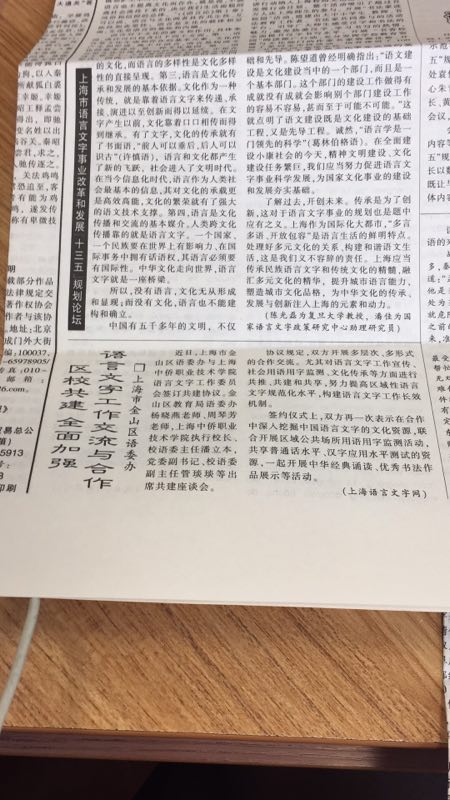 上海市语言文字事业改革和发展 十三五 规划论坛
的文化,而语言的多样性是文化多样
性的直接呈现。第三,语言是文化传
承和发展的基本依据。文化作为一种
传统,就是靠着语言文字来传递、承
接、演进以至创新而得以延续。在文
字产生以前,文化靠着口口相传而得
到继承。有了文字,文化的传承就有
了书面语,“前人可以垂后,后人可以
识古”(许慎语)。语言和文化都产生
了新的飞跃,社会进入了文明时代。
在当今信息化时代,语言作为人类社
会最基本的信息,其对文化的承载更
是高效高能,文化的繁荣就有了强大
的语文技术支撑。第四,语言是文化
传播和交流的基本媒介。人类跨文化
传播靠的就是语言文字。一个国家、
一个民族要在世界上有影响力、在国
际事务中拥有话语权,其语言必须要
有国际性。中华文化走向世界,语言
文字就是一座桥梁。
所以,没有语言,文化无从形成
和显现;而没有文化,语言也不能建
构和确立。
中国有五千多年的文明,不仅
础和先导。陈望道曾经明确指出:“语文建
设是文化建设当中的一个部门,而且是一
个基本部门。这个部门的建设工作做得有
成就没有成就会影响别个部门建设工作
的容易不容易,甚而至于可能不可能。”这
就点明了语文建设既是文化建设的基础
工程,又是先导工程。诚然,“语言学是一
门领先的科学”(葛林伯格语)。在全面建
设小康社会的今天,精神文明建设、文化
建设任务繁重,我们应当努力促进语言文
字事业科学发展,为国家文化事业的建设
和发展夯实基础。
了解过去,开创未来。传承是为了创
新,这对于语言文字事业的规划也是题中
应有之义。上海作为国际化大都市,“多言
多语、开放包容”是语言生活的鲜明特点。
处理好多元文化的关系,构建和谐语文生
活,这是我们义不容辞的责任。上海应当
传承民族语言文字和传统文化的精髓,融
汇多元文化的精华,提升城市语言能力,
塑造城市文化品格,为中华文化的传承、
发展与创新注入上海的元素和动力。
(陈光磊为复旦大学教授,潘佳为国
家语言文字政策研究中心助理研究员)
语言文字工作交流与合作
区校共建全面加强
□上海市金山区语委办
近日,上海市金
山区语委办与上海
中侨职业技术学院
语言文字工作委员
会签订共建协议。金
山区教育局语委办
杨晓燕老师、周琴芳
老师,上海中侨职业
技术学院执行校长、
校语委主任潘立本,
党委副书记、校语委
副主任管琰琰等出
席共建座谈会。
协议规定,双方开展多层次、多形式
的合作交流。尤其对语言文字工作宣传、
社会用语用字监测、文化传承等方面进行
共推、共建和共享,努力提高区域性语言
文字规范化水平,构建语言文字工作长效
机制。
签约仪式上,双方再一次表示在合作
中深入挖掘中国语言文字的文化资源,联
合开展区域公共场所用语用字监测活动,
共享普通话水平、汉字应用水平测试的资
源,一起开展中华经典诵读、优秀书法作
品展示等活动。
(上海语言文字网)